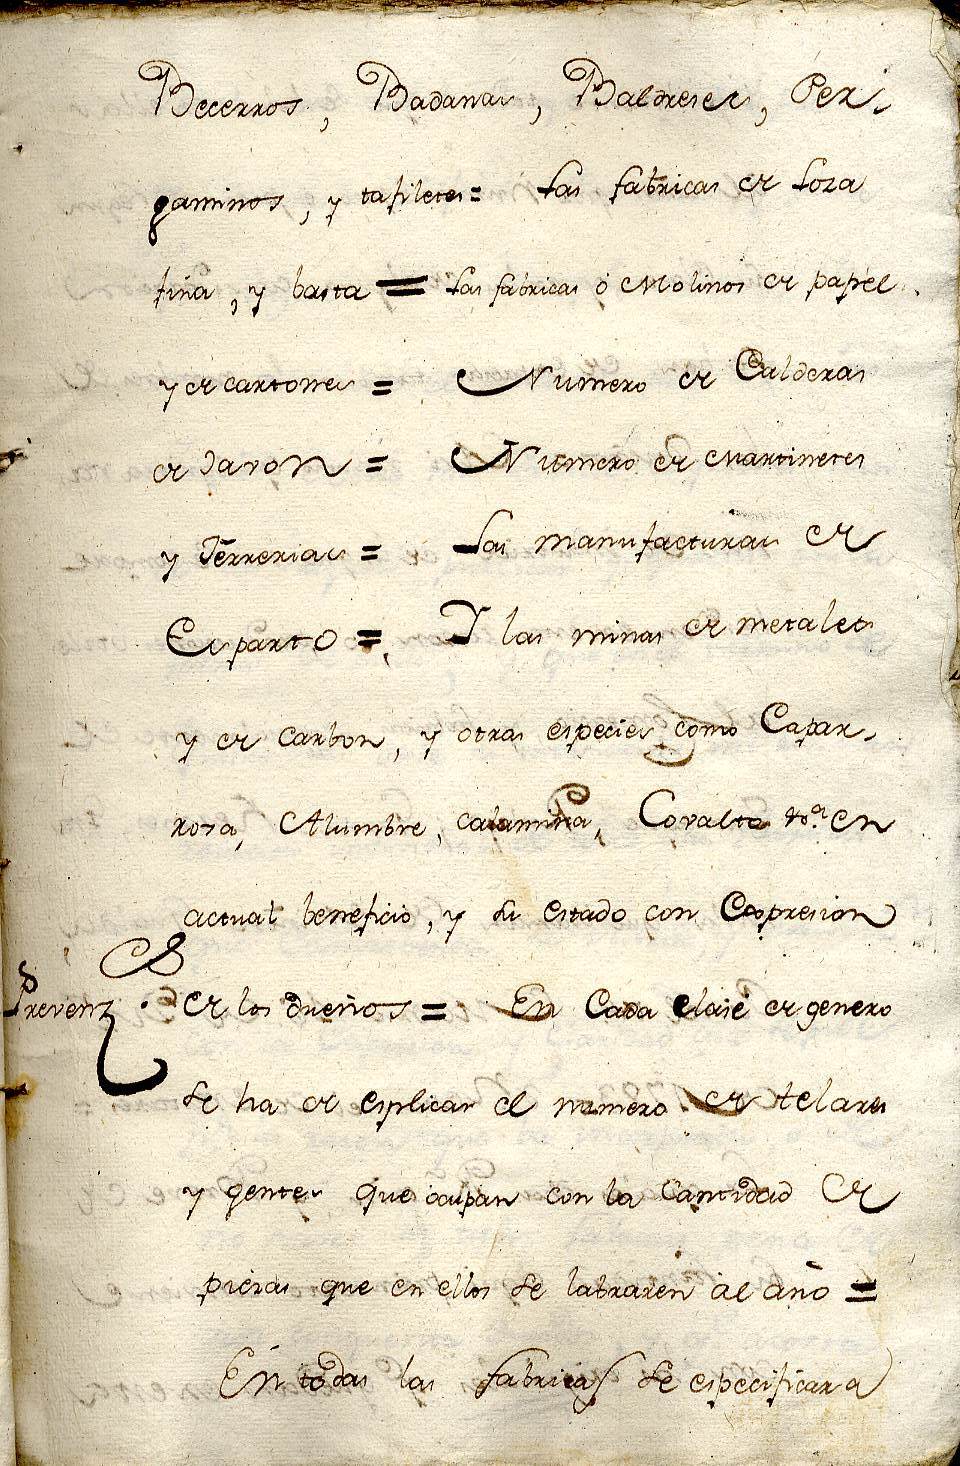 Becerros, Badanas, Baldreses, Per-
gaminos, y tafiletes = Las fabricas de Loza
fina, y basta = Las fabricas ó Molinos de papel
y de cartones = Numero de Calderas
de Javon = Numero de Martinetes
y Ferrerias = Las manufacturas de
Esparto = Y las minas de metales
y de carbon, y otras especies como Capar-
rosa, Alumbre, calamina, Covalto &c.ª en
actual beneficio, y su estado con Expresion
Prevenz.
de los dueños = En Cada clase de genero
se ha de esplicar el numero de telares
y gentes que ocupan con la Cantidad de
piezas que en ellos se labraren al año =
En todas las fabricas se especificara